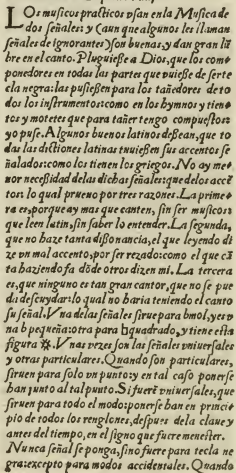 Os musicos practicos vsan enla Musica de
dos señales: y (aun que algunos les llaman
señales de ignorantes) son buenas, y dan gran lũ
bre en el canto. Pluguiesse a Dios, que los com-
ponedores en todas las partes que vuiesse de ser te
cla negra: las pusiessen para los tañedores de to
dos los instrumentos: como en los hymnos y tien-
tos y motetes que para tañer tengo compuestos:
yo puse. Algunos buenos latinos dessean, que to
das las dictiones latinas tuuiessen sus accentos se
ñalados: como los tienen los griegos. No ay me-
nor necessidad delas dichas señales: que delos accẽ
tos: lo qual prueuo por tres razones. La prime-
ra es, porque ay mas que canten, sin ser musicos:
que leen latin, sin saber lo entender. La segunda,
que no haze tanta dissonancia, el que leyendo di
ze vn mal accento, por ser rezado: como el que cã
ta haziendo fa dõde otros dizen mi. La tercera
es, que ninguno es tan gran cantor, que no se pue
da descuydar: lo qual no haria teniendo el canto
su señal. Vna delas señales sirue para bmol, y es v
na b pequeña: otra para ♮quadrado, y tiene esta
figura ※. Vnas vezes son las señales vniuersales
y otras particulares. Quando son particulares,
siruen para solo vn punto: y en tal caso ponerse
han junto al tal punto. Si fuerẽ vniuersales, que
siruen para todo el modo: ponerse han en princi-
pio de todos los renglones, despues dela claue y
antes del tiempo, en el signo que fuere menester.
Nunca señal se ponga, sino fuere para tecla ne
gra: excepto para modos accidentales. Quando